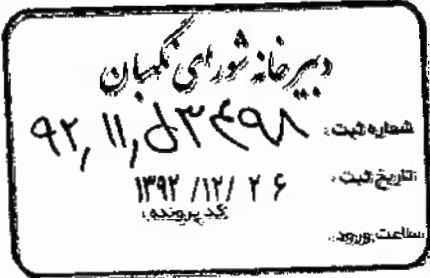 دبیرخانه شورای نگهبان
شماره ثبت: ۹۲/۱۱/۵۳۴۹۸
تاریخ ثبت: ۱۳۹۲/۱۲/۲۶
کد پرونده:
ساعت ورود: